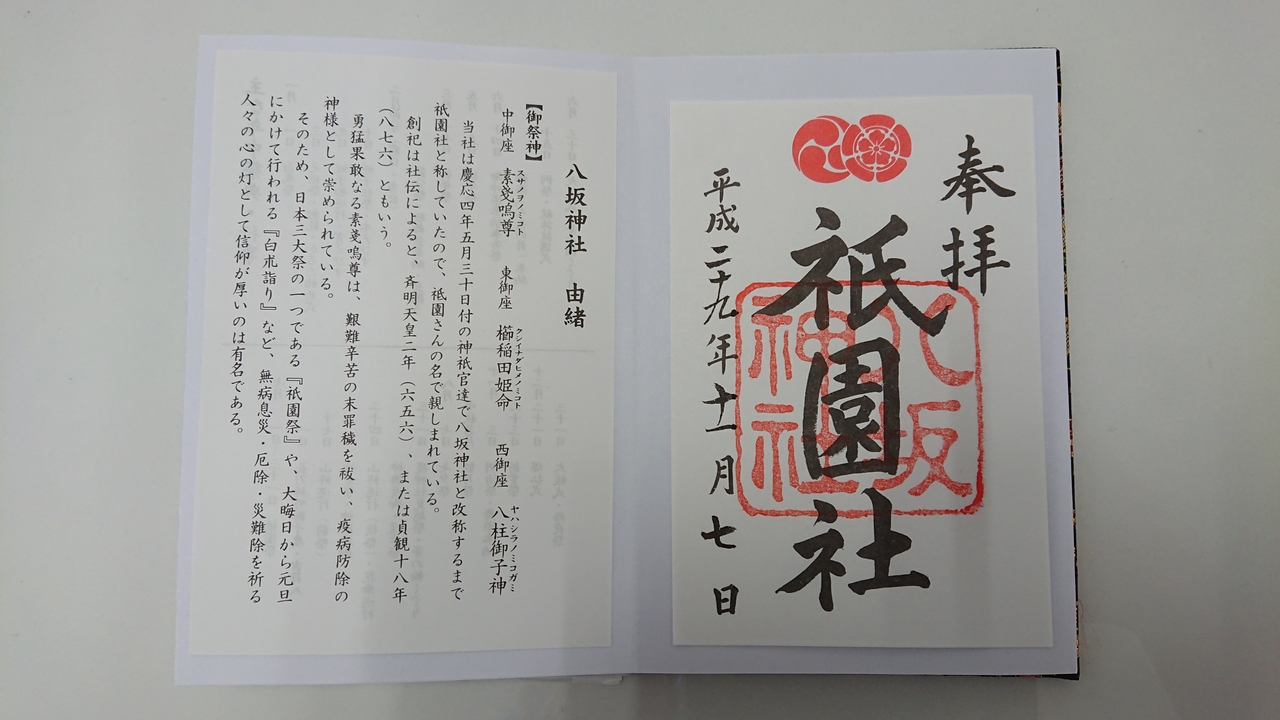 奉拝
祇園社
八坂神社
平成二十九年十一月七日
八坂神社 由緒
【御祭神】
中御座 素戔嗚尊 東御座 櫛稲田姫命 西御座 八柱御子神
スサノヲノミコト クシイナダヒメノミコト ヤハシラノミコガミ
当社は慶応四年五月三十日付の神祇官達で八坂神社と改称するまで
祇園社と称していたので、祇園さんの名で親しまれている。
創祀は社伝によると、斉明天皇二年（六五六）、または貞観十八年
（八七六）ともいう。
勇猛果敢なる素戔嗚尊は、艱難辛苦の末罪穢を祓い、疫病防除の
神様として崇められている。
そのため、日本三大祭の一つである『祇園祭』や、大晦日から元旦
にかけて行われる『白朮詣り』など、無病息災・厄除・災難除を祈る
人々の心の灯として信仰が厚いのは有名である。